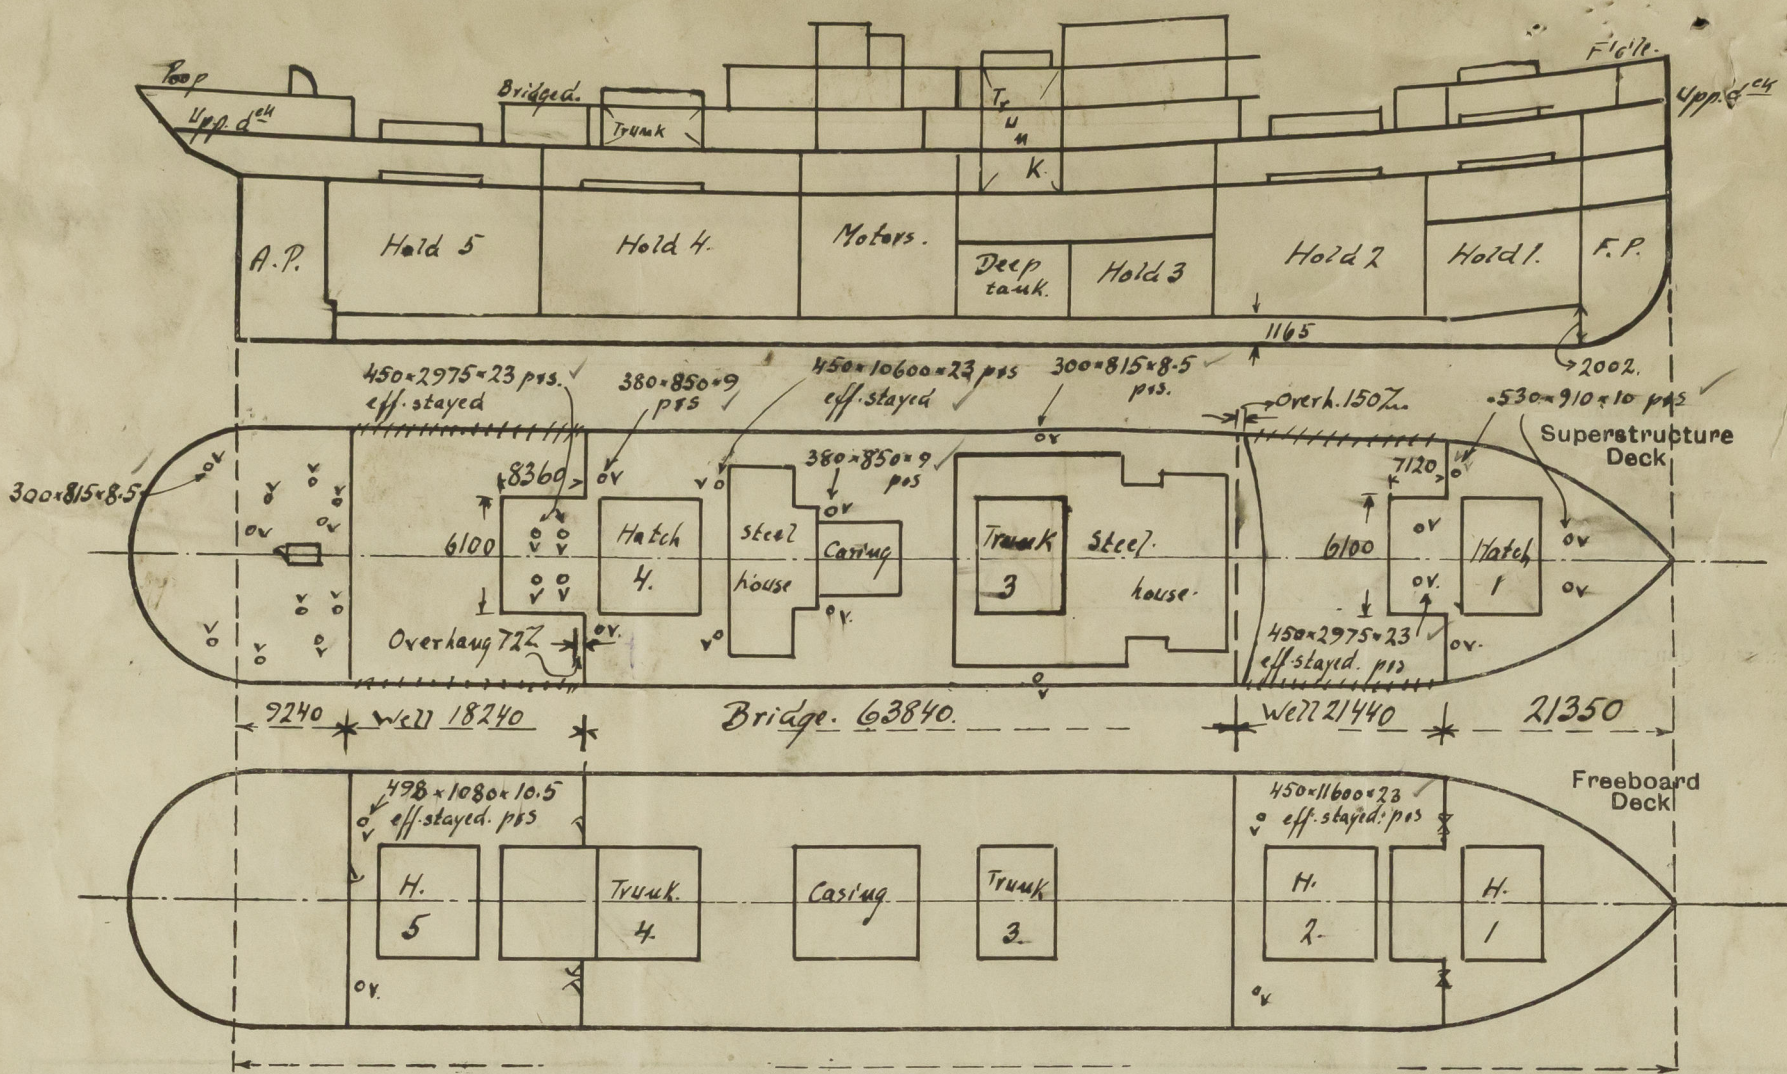 Poop
Upp. deck
Bridged.
Trunk
Trunk
F'cle.
Upp. deck
A.P.
Hold 5
Hold 4.
Motors.
Deep
tank.
Hold 3
Hold 2
Hold 1.
F.P.
1165
2002.
450×2975×23 prs.
eff. stayed
380×850×9
prs
450×10600×23 prs
eff. stayed
300×815×8.5
prs.
Overh. 150
530×910×10 prs
Superstructure
Deck
300×815×8.5
8360
6100
Hatch
4.
Steel
house
380×850×9
prs
Casing
Trunk
3
Steel
house.
7120
6100
Hatch
1
450×2975×23
eff. stayed. prs
Overhang 72
9240
Well 18240
Bridge. 63840.
Well 21440
21350
Freeboard
Deck
498×1080×10.5
eff. stayed. prs
450×11600×23
eff. stayed: prs
H.
5
Trunk.
4.
Casing
Trunk
3.
H.
2.
H.
1